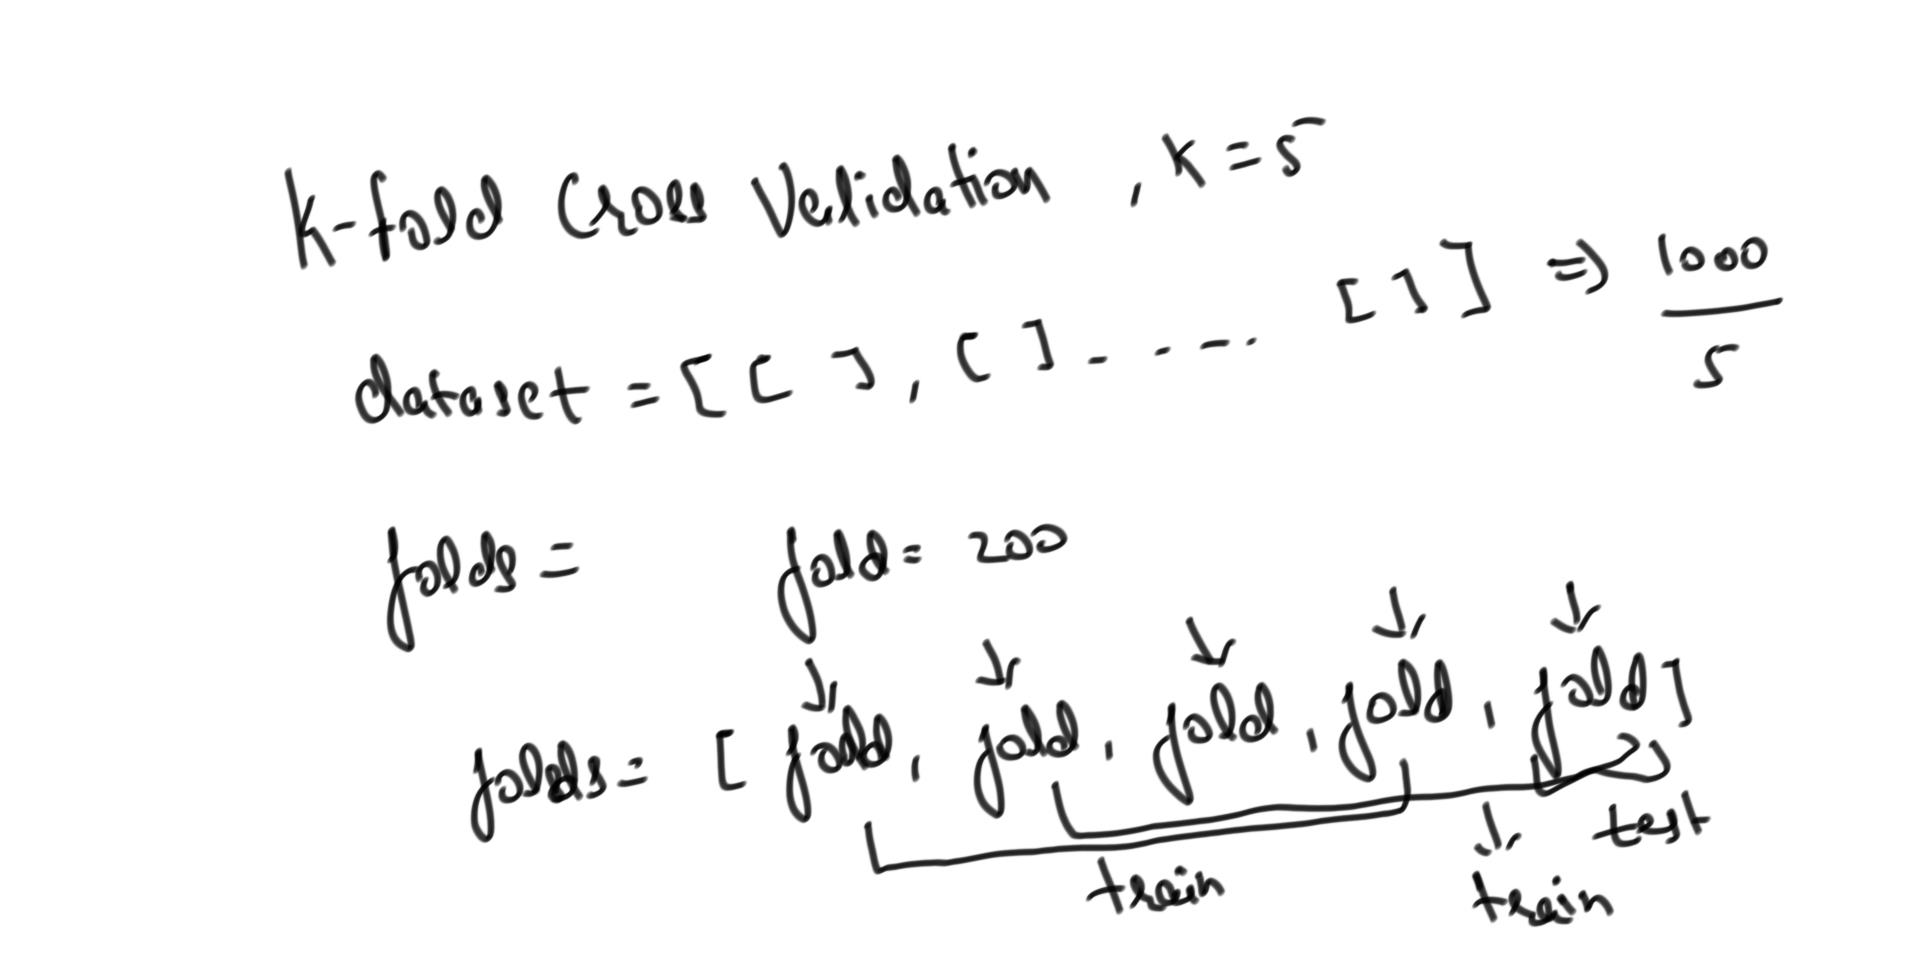 K-fold Cross Validation , K = 5
dataset = [ [ ] , [ ] - - - - - [ ] ] ⇒ 1000
5
folds = fold = 200
folds = [ fold, fold, fold, fold, fold ]
test
train train